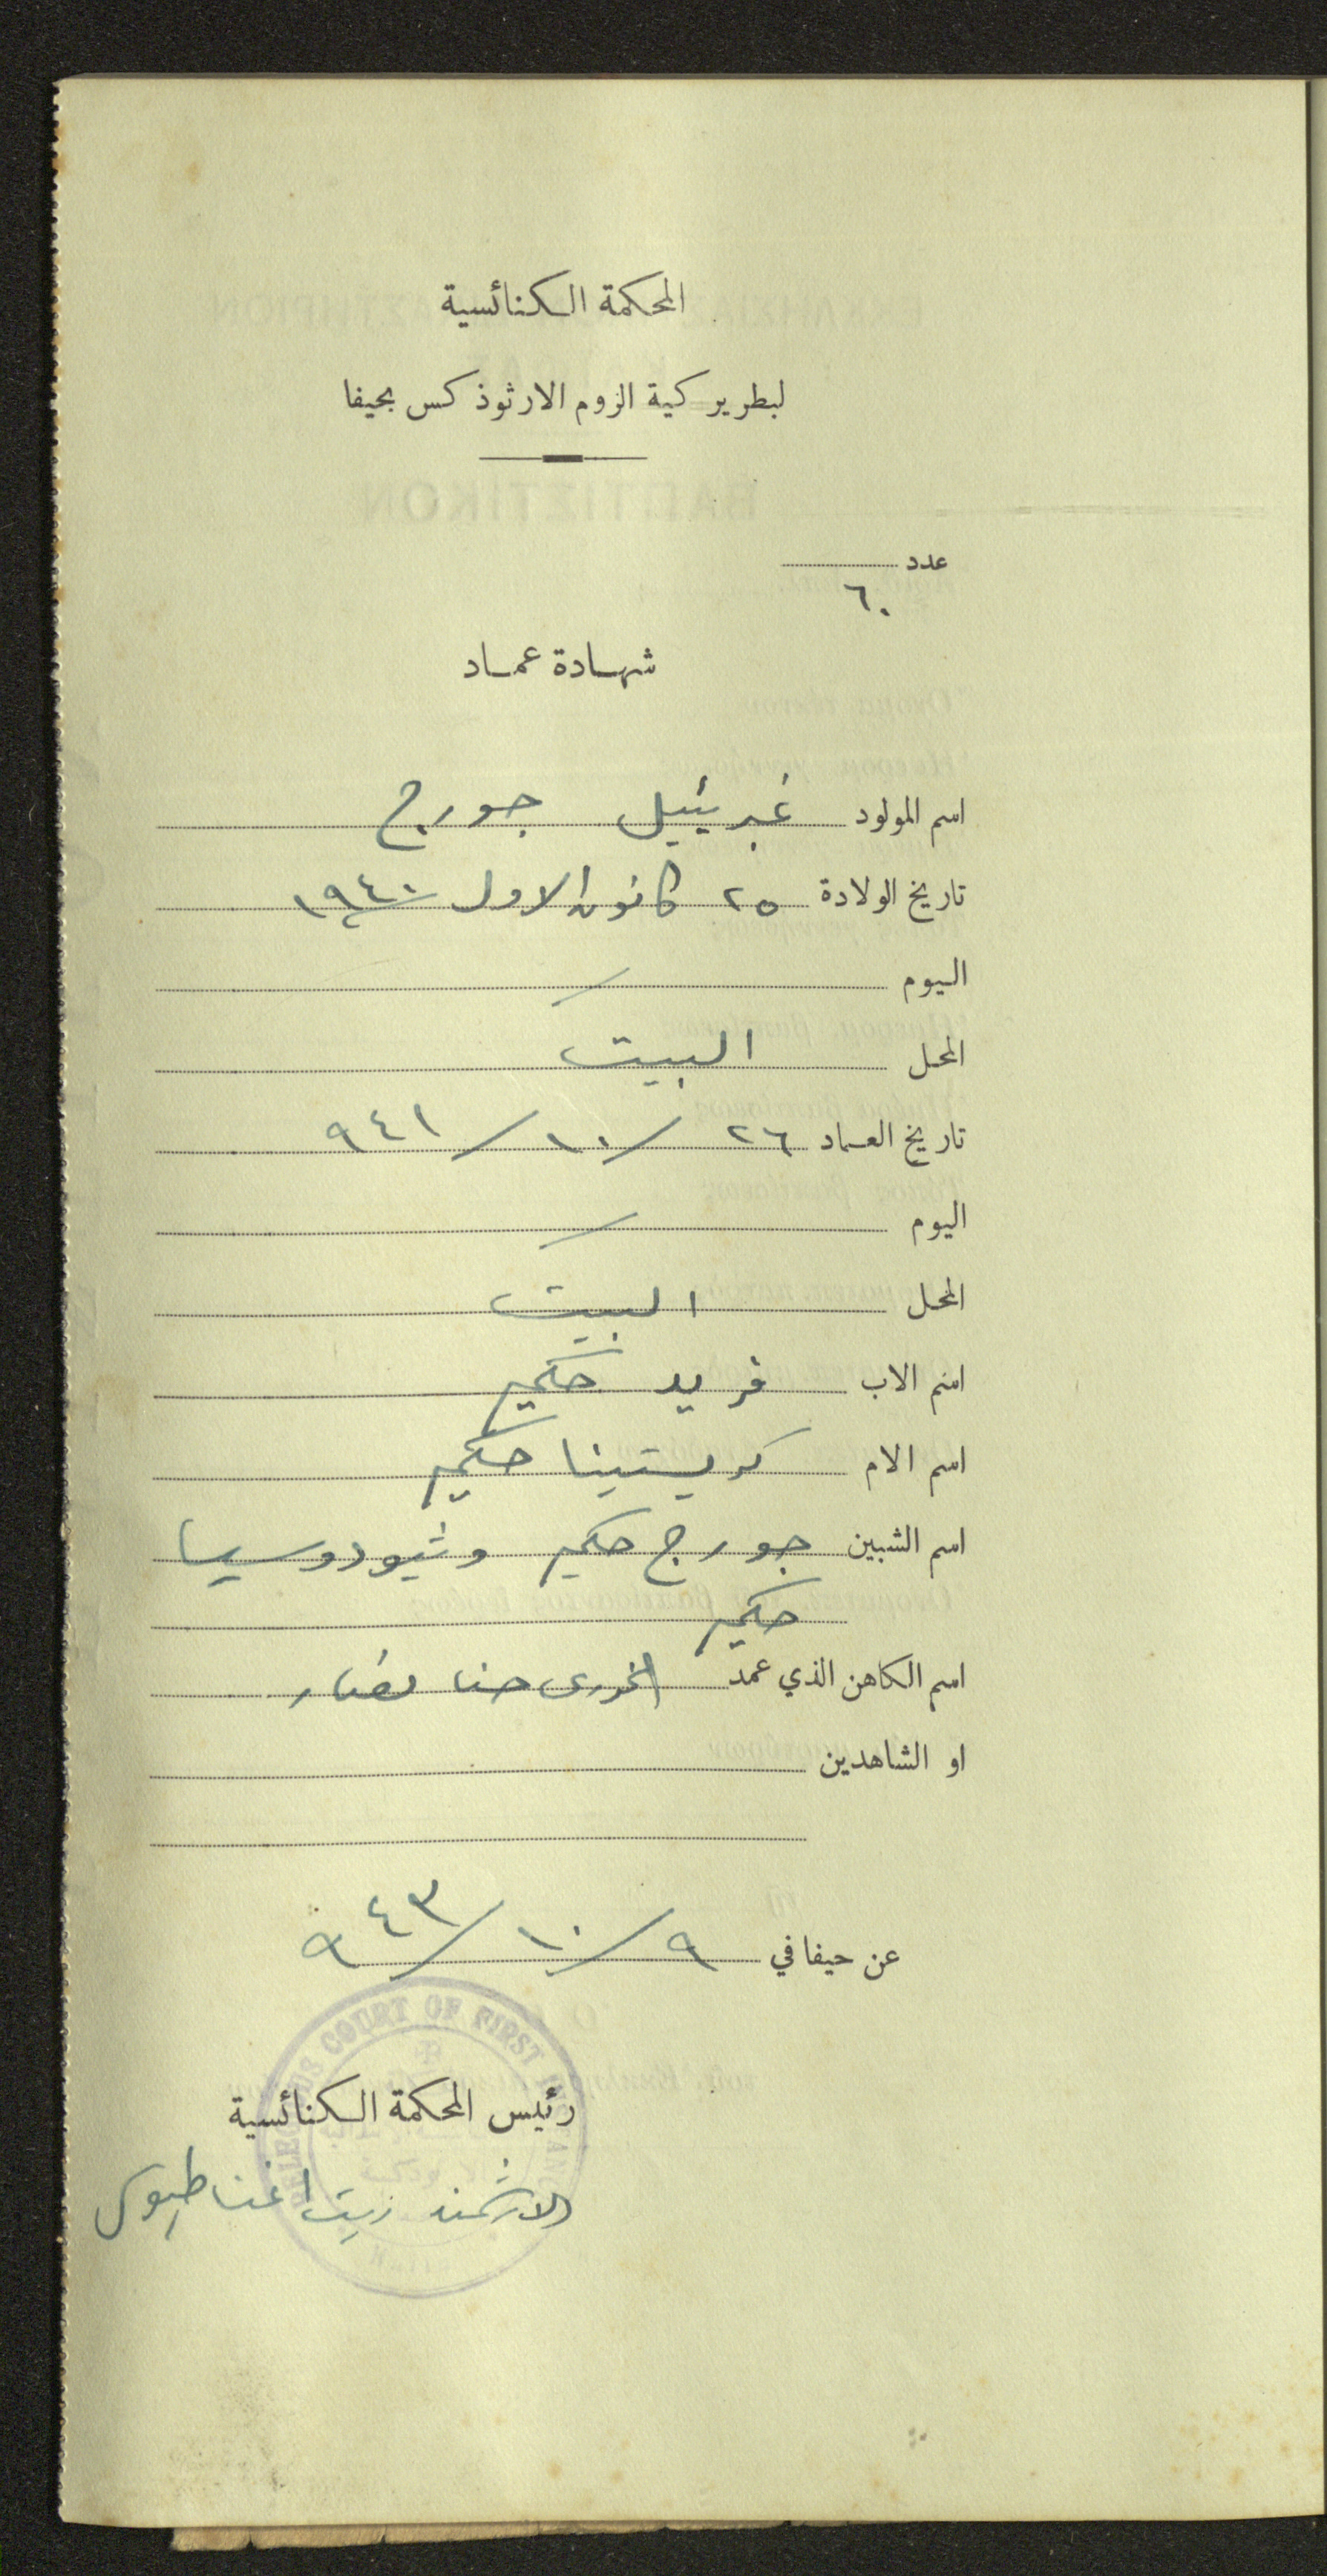 المحكمة الكنائسية
لبطريركية الروم الارثوذكس بحيفا
عدد
٦٠
شهادة عماد
اسم المولود غبريئيل جورج
تاريخ الولادة ٢٥ كانون الاول ١٩٤٠
اليوم /
المحل البيت
تاريخ العماد ٢٦/١٠/٩٤١
اليوم /
المحل البيت
اسم الاب فريد حكيم
اسم الام كريستينا حكيم
اسم الشبين جورج حكيم وثيودوسيا
حكيم
اسم الكاهن الذي عمد الخوري حنا
او الشاهدين
عن حيفا في ٩/١٠/٩٤٣
RELIGIOUS COURT OF FIRST INSTANCE
رئيس المحكمة الكنائسية
الارشمندريت اغناطيوس